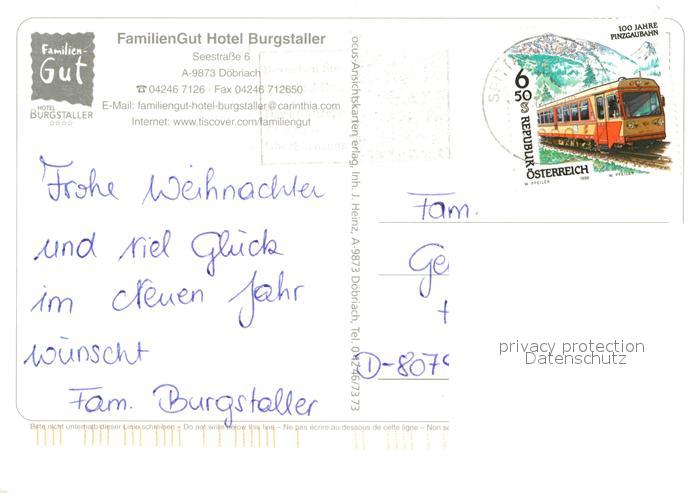 Familien-
Gut
HOTEL
BURGSTALLER
FamilienGut Hotel Burgstaller
Seestraße 6
A-9873 Döbriach
☎ 04246 7126 · Fax 04246 712650
E-Mail: familiengut-hotel-burgstaller@carinthia.com
Internet: www.tiscover.com/familiengut
Frohe Weihnachten
und viel Glück
im Neuen Jahr
wünscht
Fam. Burgstaller
Bitte nicht unterhalb dieser Linie schreiben – Do not write below this line – Ne pas écrire au dessous de cette ligne – Non
ocus-Ansichtskarten erlag, Inh. J. Heinz, A-9873 Döbriach, Tel. 0 42 46/73 73
100 JAHRE
PINZGAUBAHN
6
50 S
REPUBLIK
ÖSTERREICH
W. PFEILER 1998 W. PFEILER
SPIT
Fam.
Ge
D-8079
privacy protection
Datenschutz